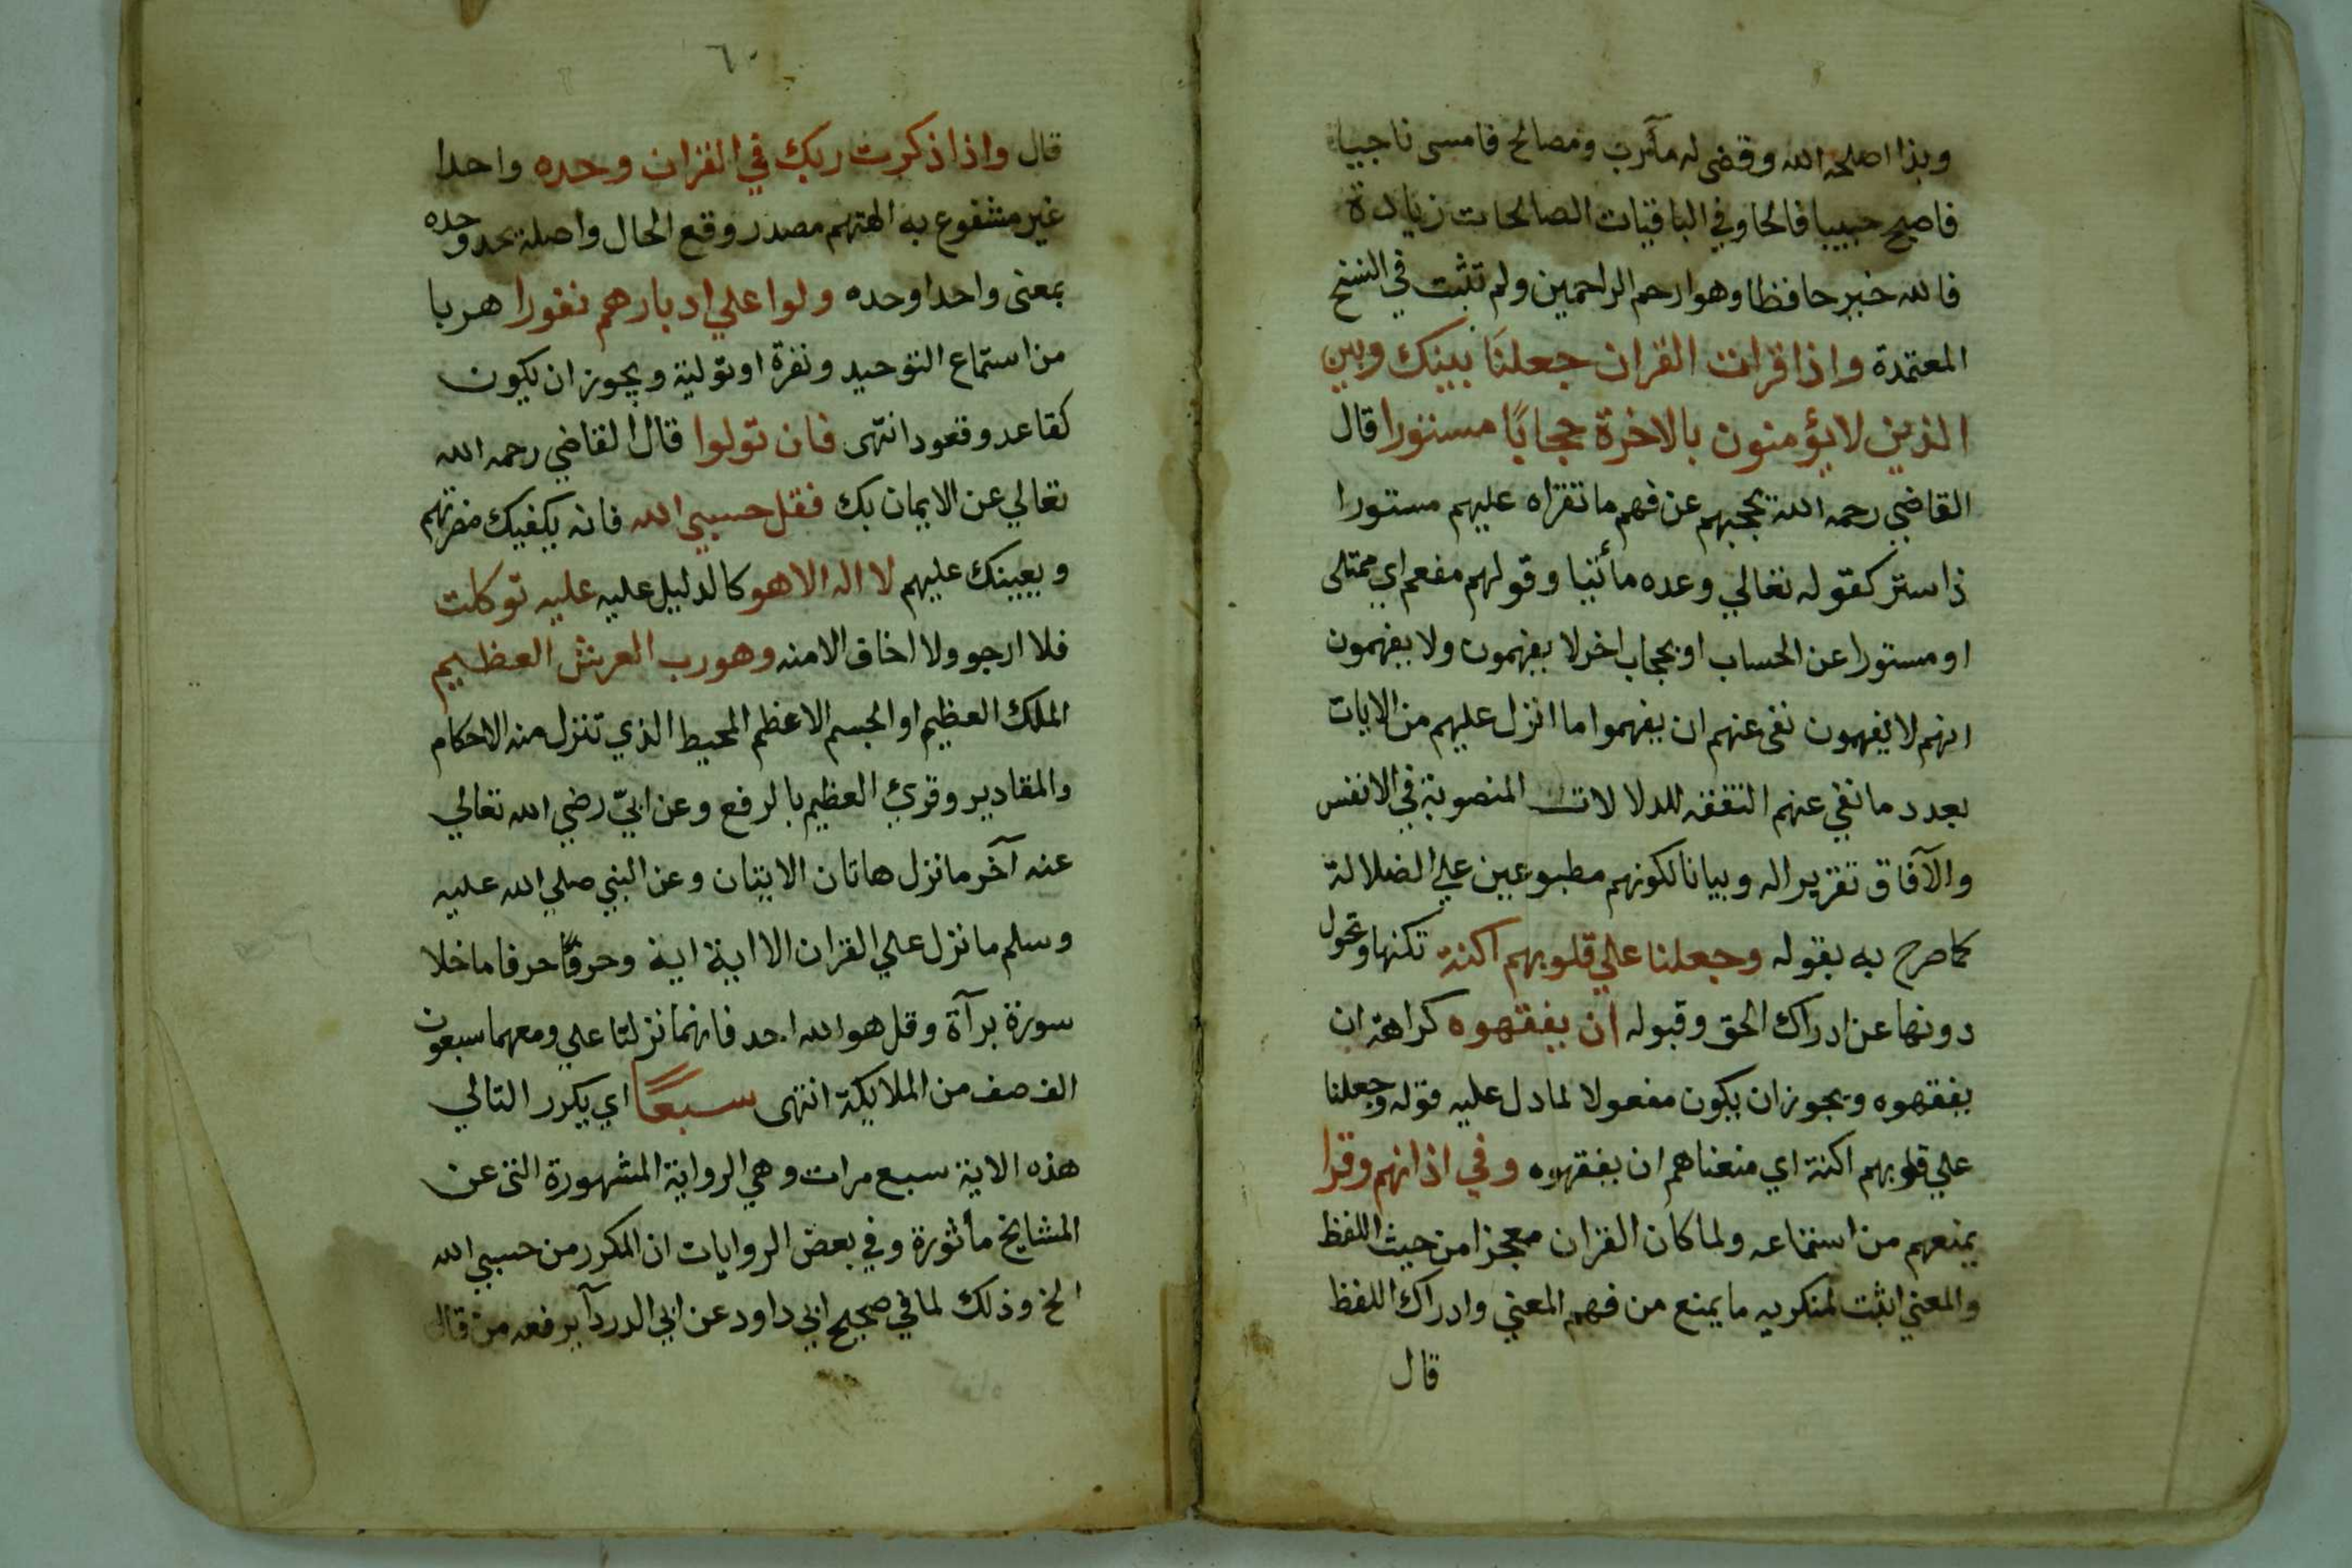 وبذا اصلحه الله وقضى له مآرب ومصالح فامسى ناجيا
فاصبح حبيبا فالحا وفي الباقيات الصالحات زيادة
فالله خير حافظا وهو ارحم الراحمين ولم تثبت في النسخ
المعتمدة واذا قرات القران جعلنا بينك وبين
الذين لا يؤمنون بالاخرة حجابًا مستورا قال
القاضي رحمه الله يحجبهم عن فهم ما تقراه عليهم مستورا
ذا ستر كقوله تعالي وعده مأتيا وقولهم مفعم اي ممتلى
او مستورا عن الحساب او بحجاب اخر لا يفهمون ولا يفهمون
انهم لا يفهمون نفى عنهم ان يفهموا ما انزل عليهم من الايات
بعد ما نفي عنهم التفقه للدلالات المنصوبة في الانفس
والآفاق تقريرا له وبيانا لكونهم مطبوعين علي الضلالة
كما صرح به بقوله وجعلنا علي قلوبهم اكنة تكنها وتحول
دونها عن ادراك الحق وقبوله ان يفقهوه كراهة ان
يفقهوه ويجوز ان يكون مفعولا لما دل عليه قوله وجعلنا
علي قلوبهم اكنة اي منعناهم ان يفقهوه وفي اذانهم وقرا
يمنعهم من استماعه ولما كان القران معجزا من حيث اللفظ
والمعني اثبت لمنكريه ما يمنع من فهم المعني وادراك اللفظ
قال
٦٠
قال واذا ذكرت ربك في القران وحده واحدا
غير مشفوع به الهتهم مصدر وقع الحال واصله يحد وحده
بمعنى واحدا وحده ولوا علي ادبارهم نفورا هربا
من استماع التوحيد ونفرة او تولية ويجوز ان يكون
كقاعد وقعود انتهى فان تولوا قال القاضي رحمه الله
تعالي عن الايمان بك فقل حسبي الله فانه يكفيك مضرتهم
ويعينك عليهم لا اله الا هو كالدليل عليه عليه توكلت
فلا ارجو ولا اخاف الا منه وهو رب العرش العظيم
الملك العظيم او الجسم الاعظم المحيط الذي تنزل منه الاحكام
والمقادير وقرئ العظيم بالرفع وعن ابيّ رضي الله تعالي
عنه آخر ما نزل هاتان الايتان وعن النبي صلي الله عليه
وسلم ما نزل علي القران الا اية اية وحرفًا حرفا ما خلا
سورة برآة وقل هو الله احد فانهما نزلتا علي ومعهما سبعون
الف صف من الملايكة انتهى سبعًا اي يكرر التالي
هذه الاية سبع مرات وهي الرواية المشهورة التى عن
المشايخ مأثورة وفي بعض الروايات ان المكرر من حسبي الله
الخ وذلك لما في صحيح ابي داود عن ابي الدردآ يرفعه من قال